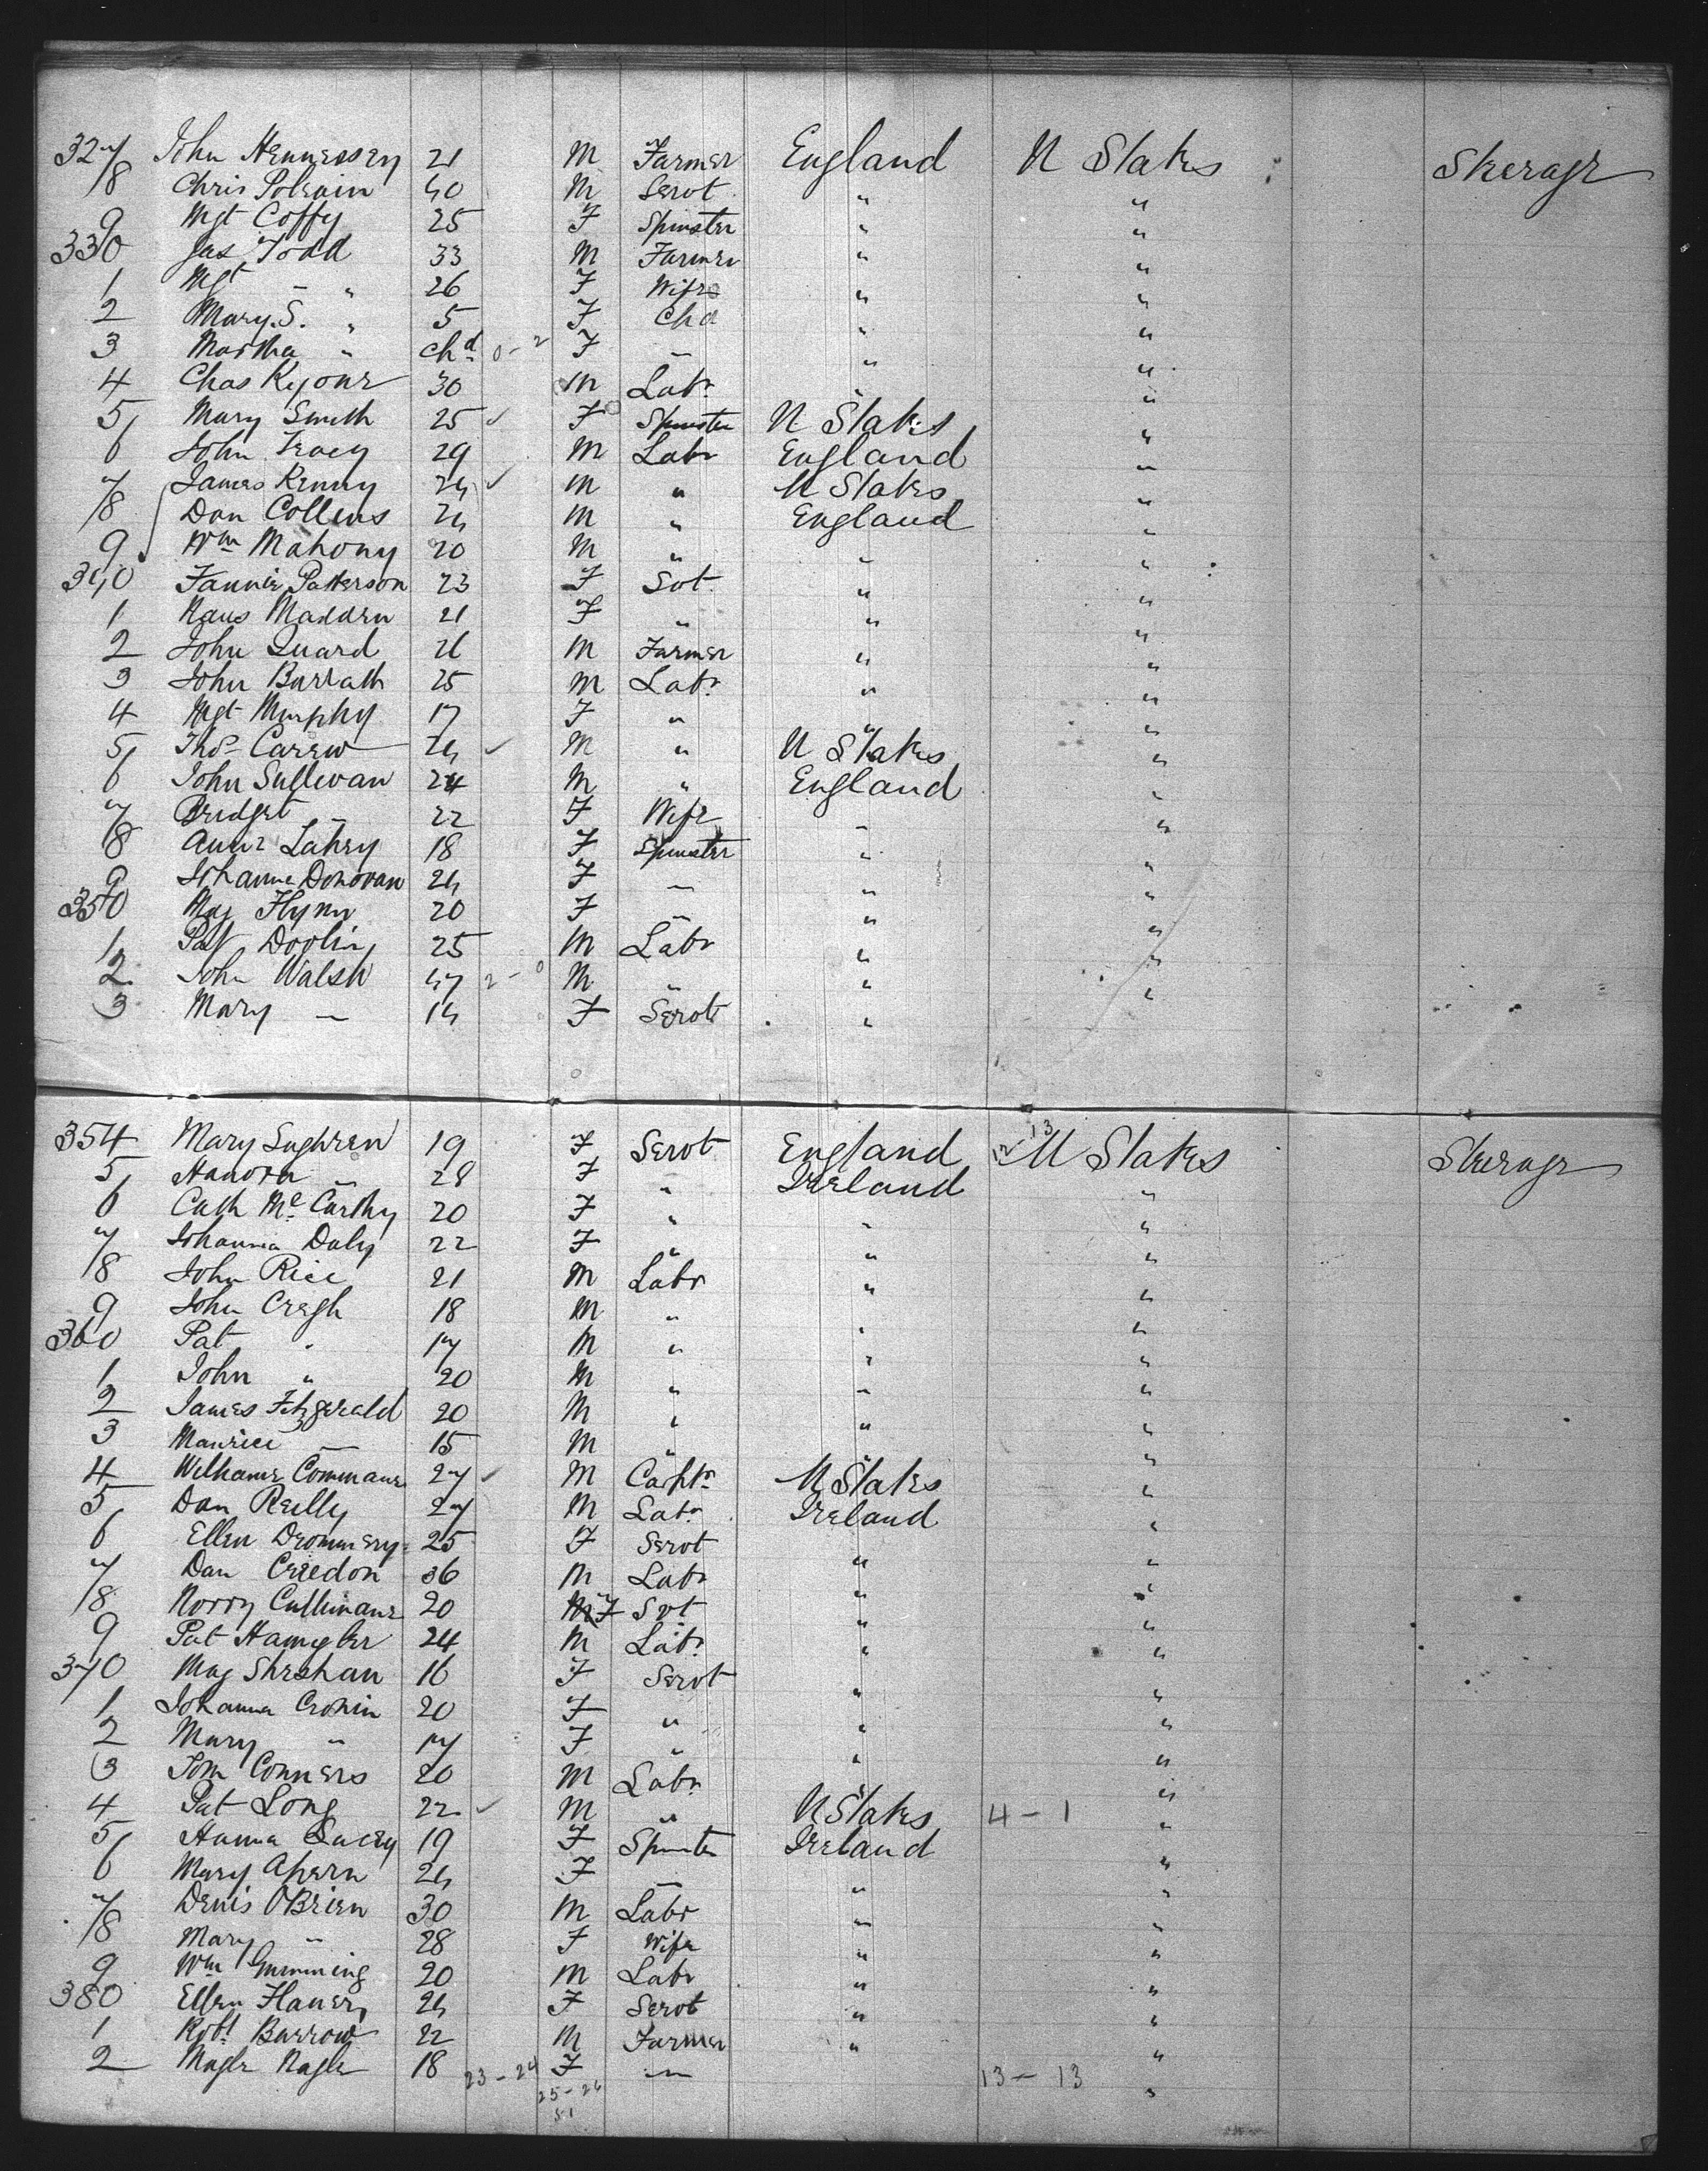 327 John Hennessey 21 M Farmer England U States Steerage
8 Chris 40 M Servt " "
9 Mgt Coffy 25 F Spinster " "
330 Jas Todd 33 M Farmer " "
1 Mgt " 26 F Wife " "
2 Mary S. " 5 F Chd " "
3 Martha " Chd 0-2 F " " "
4 Chas 30 M Labr " "
5 Mary Smith 25 ✓ F Spinster U States "
6 John Tracy 29 M Labr England "
7 James Kenny 24 ✓ M " U States "
8 Dan Collens 24 M " England "
9 Wm Mahony 20 M " " "
340 Fannie Patterson 23 F Svt " "
1 Madden 21 F " " "
2 John 26 M Farmer " "
3 John 25 M Labr " "
4 Mgt Murphy 17 F " " "
5 Thos Carew 24 ✓ M " U States "
6 John Sullivan 24 M " England "
7 Bridget " 22 F Wife " "
8 Anne Lahey 18 F Spinster " "
9 Johanna Donovan 24 F " " "
350 Mag Flynn 20 F " " "
1 Pat Doolin 25 M Labr " "
2 John Walsh 47 2-0 M " " "
3 Mary " 14 F Servt " "
354 Mary Sughren 19 F Servt England 13 U States Steerage
5 Hanora " 28 F " Ireland "
6 Cath McCarthy 20 F " " "
7 Johanna Daly 22 F " " "
8 John Rice 21 M Labr " "
9 John Cregh 18 M " " "
360 Pat " 17 M " " "
1 John " 20 M " " "
2 James Fitzgerald 20 M " " "
3 Maurice " 15 M " " "
4 Commane 27 ✓ M Carptr U States "
5 Dan Reilly 27 M Labr Ireland "
6 Ellen Drommery 25 F Servt " "
7 Dan Creedon 36 M Labr " "
8 Norry Cullinane 20 F Svt " "
9 Pat 24 M Labr " "
370 Mag Shrehan 16 F Servt " "
1 Johanna Cronin 20 F " " "
2 Mary " 17 F " " "
3 Tom Conners 20 M Labr " "
4 Pat Long 22 ✓ M " U States 4-1 "
5 Hanna Lucey 19 F Spinster Ireland "
6 Mary Ahern 24 F " " "
7 Denis OBrien 30 M Labr " "
8 Mary " 28 F Wife " "
9 Wm 20 M Labr " "
380 Ellen 24 F Servt " "
1 Robt Barrow 22 M Farmer " "
2 Nagle 18 23-24 F " 13-13 "
25-26
51